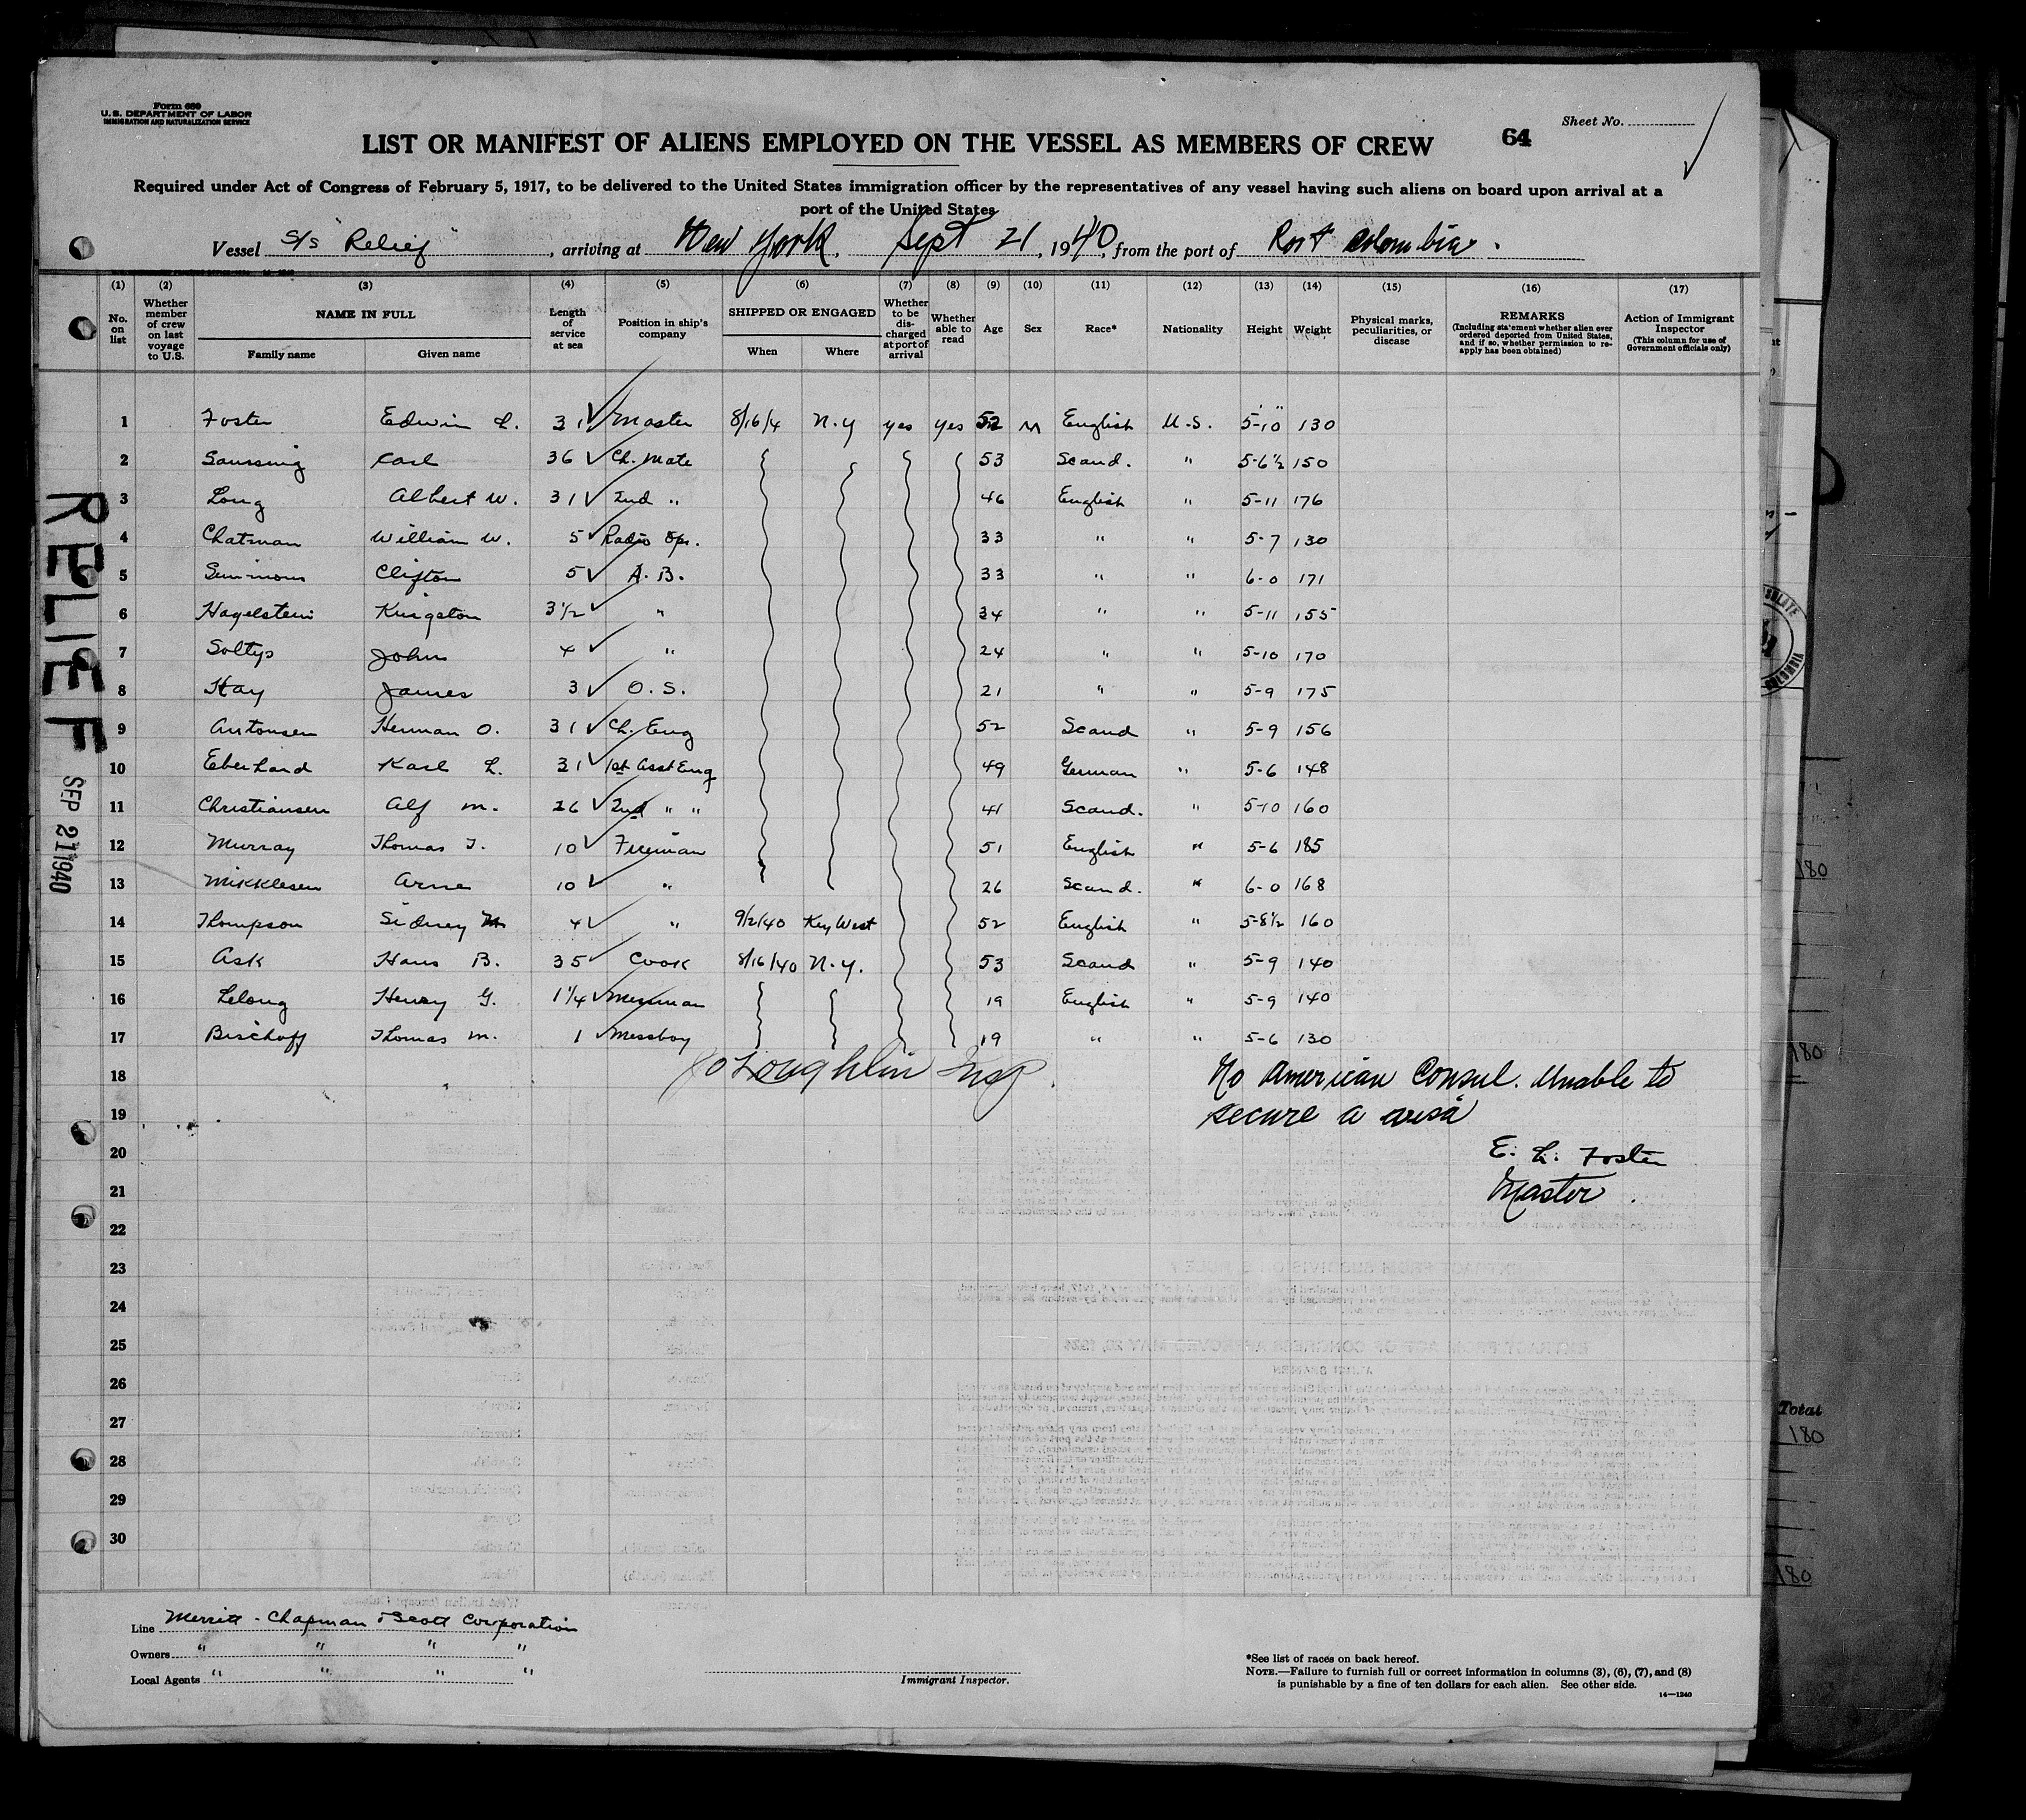 Form 689
U.S. DEPARTMENT OF LABOR
IMMIGRATION AND NATURALIZATION SERVICE
Sheet No.
LIST OR MANIFEST OF ALIENS EMPLOYED ON THE VESSEL AS MEMBERS OF CREW 64
Required under Act of Congress of February 5, 1917, to be delivered to the United States immigration officer by the representatives of any vessel having such aliens on board upon arrival at a
port of the United States
Vessel S/S "Relief", arriving at New York, Sept 21, 1940, from the port of Port Colombia.
(1) No. on list (2) Whether member of crew on last voyage to U.S. (3) NAME IN FULL Family name Given name (4) Length of service at sea (5) Position in ship's company (6) SHIPPED OR ENGAGED When Where (7) Whether to be discharged at port of arrival (8) Whether able to read (9) Age (10) Sex (11) Race* (12) Nationality (13) Height (14) Weight (15) Physical marks, peculiarities, or disease (16) REMARKS (Including statement whether alien ever ordered deported from United States, and if so, whether permission to re-apply has been obtained) (17) Action of Immigrant Inspector (This column for use of Government officials only)
1 Foster Edwin L. 31 Master 8/16/4 N.Y yes yes 52 M English U.S. 5-10 130
2 Karl 36 Ch. Mate 53 Scand. " 5-6½ 150
3 Long Albert W. 31 2nd " 46 English " 5-11 176
4 Chatman William W. 5 Radio Opr. 33 " " 5-7 130
5 Clifton 5 A.B. 33 " " 6-0 171
6 Hagelstein Kingston 3½ " 24 " " 5-11 155
7 Soltys John 4 " 24 " " 5-10 170
8 Hay James 3 O.S. 21 " " 5-9 175
9 Antonsen Herman O. 31 Ch. Eng 52 Scand " 5-9 156
10 Eberhard Karl L. 31 1st Asst Eng 49 German " 5-6 148
11 Christiansen Alf M. 26 2nd " " 41 Scand. " 5-10 160
12 Murray Thomas J. 10 Fireman 51 English " 5-6 185
13 Mikklesen Arne 10 " 26 Scand. " 6-0 168
14 Thompson Sidney M 4 " 9/2/40 Key West 52 English " 5-8½ 160
15 Ask Hans B. 35 Cook 8/16/40 N.Y. 53 Scand " 5-9 140
16 Lelong Henry G. 1¼ Messman 19 English " 5-9 140
17 Bischoff Thomas M. 1 Messboy 19 " " 5-6 130
O'Loughlin Insp.
18
19
20
21
22
23
24
25
26
27
28
29
30
No American Consul. Unable to
secure a visa
E. L. Foster
Master.
RELIEF
SEP 21 1940
Line Merritt-Chapman & Scott Corporation
Owners " " " "
Local Agents " " " "
Immigrant Inspector.
*See list of races on back hereof.
NOTE.—Failure to furnish full or correct information in columns (3), (6), (7), and (8)
is punishable by a fine of ten dollars for each alien. See other side.
14—1240
180
180
Total
180
180